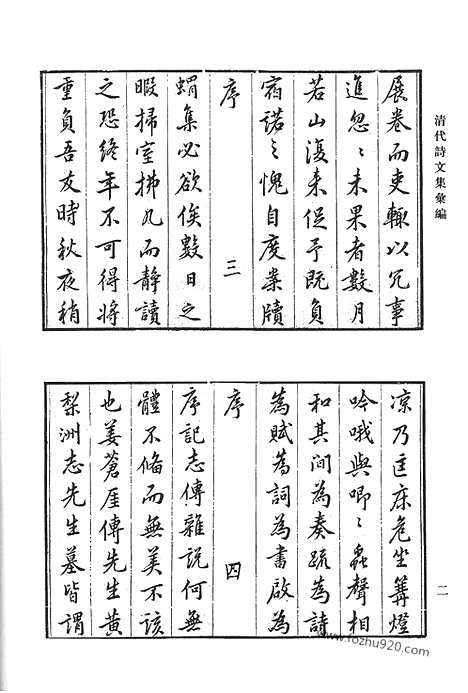 清代詩文集彙編
展卷而吏輒以冗事
進忽〻未果者數月
若山復來促予既負
宿諾之愧自度案牘
序 三
蝟集必欲俟數日之
暇掃室拂几而靜讀
之恐終年不可得將
重負吾友時秋夜稍
涼乃匡床危坐篝燈
吟哦與唧〻蟲聲相
和其間為奏疏為詩
為賦為詞為書啟為
序 四
序記志傳雜說何無
體不備而無美不該
也姜蒼厓傳先生黃
梨洲志先生墓皆謂
二
www.fozhu920.com